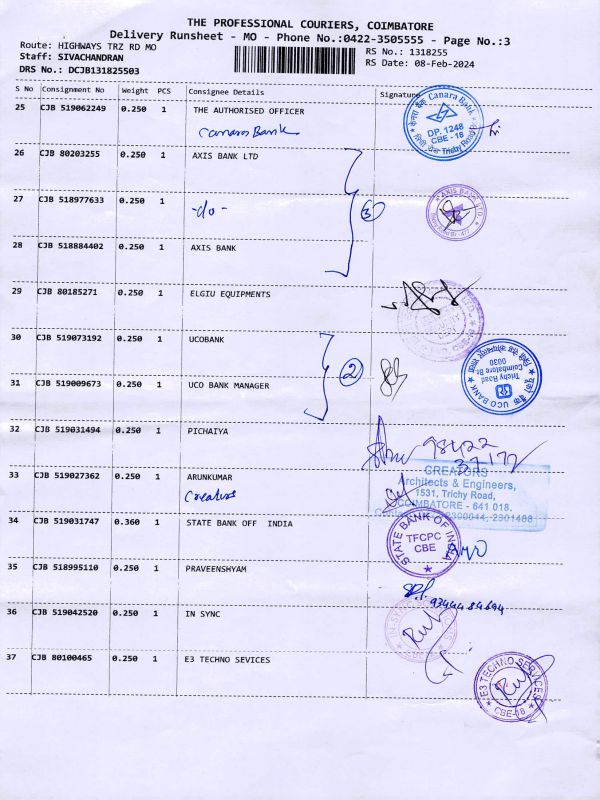 THE PROFESSIONAL COURIERS, COIMBATORE
Delivery Runsheet - MO - Phone No.:0422-3505555 - Page No.:3
Route: HIGHWAYS TRZ RD MO
RS No.: 1318255
Staff: SIVACHANDRAN
RS Date: 08-Feb-2024
DRS No.: DCJB131825503
S No Consignment No Weight PCS Consignee Details Signature
25 CJB 519062249 0.250 1 THE AUTHORISED OFFICER
Canara Bank
Canara Bank
DP. 1248
CBE - 18
Trichy Road
26 CJB 80203255 0.250 1 AXIS BANK LTD
27 CJB 518977633 0.250 1 -do- 3
AXIS BANK LTD.
28 CJB 518884402 0.250 1 AXIS BANK
29 CJB 80185271 0.250 1 ELGIU EQUIPMENTS
30 CJB 519073192 0.250 1 UCOBANK
2
UCO BANK
Coimbatore Br
Trichy Road
0030
31 CJB 519009673 0.250 1 UCO BANK MANAGER
32 CJB 519031494 0.250 1 PICHAIYA
98422
37172
33 CJB 519027362 0.250 1 ARUNKUMAR
Creators
CREATORS
Architects & Engineers,
1531, Trichy Road,
COIMBATORE - 641 018.
2300044, 2301488
34 CJB 519031747 0.360 1 STATE BANK OFF INDIA
STATE BANK OF INDIA
TFCPC
CBE
35 CJB 518995110 0.250 1 PRAVEENSHYAM
36 CJB 519042520 0.250 1 IN SYNC
37 CJB 80100465 0.250 1 E3 TECHNO SEVICES
E3 TECHNO SERVICES
CBE-18